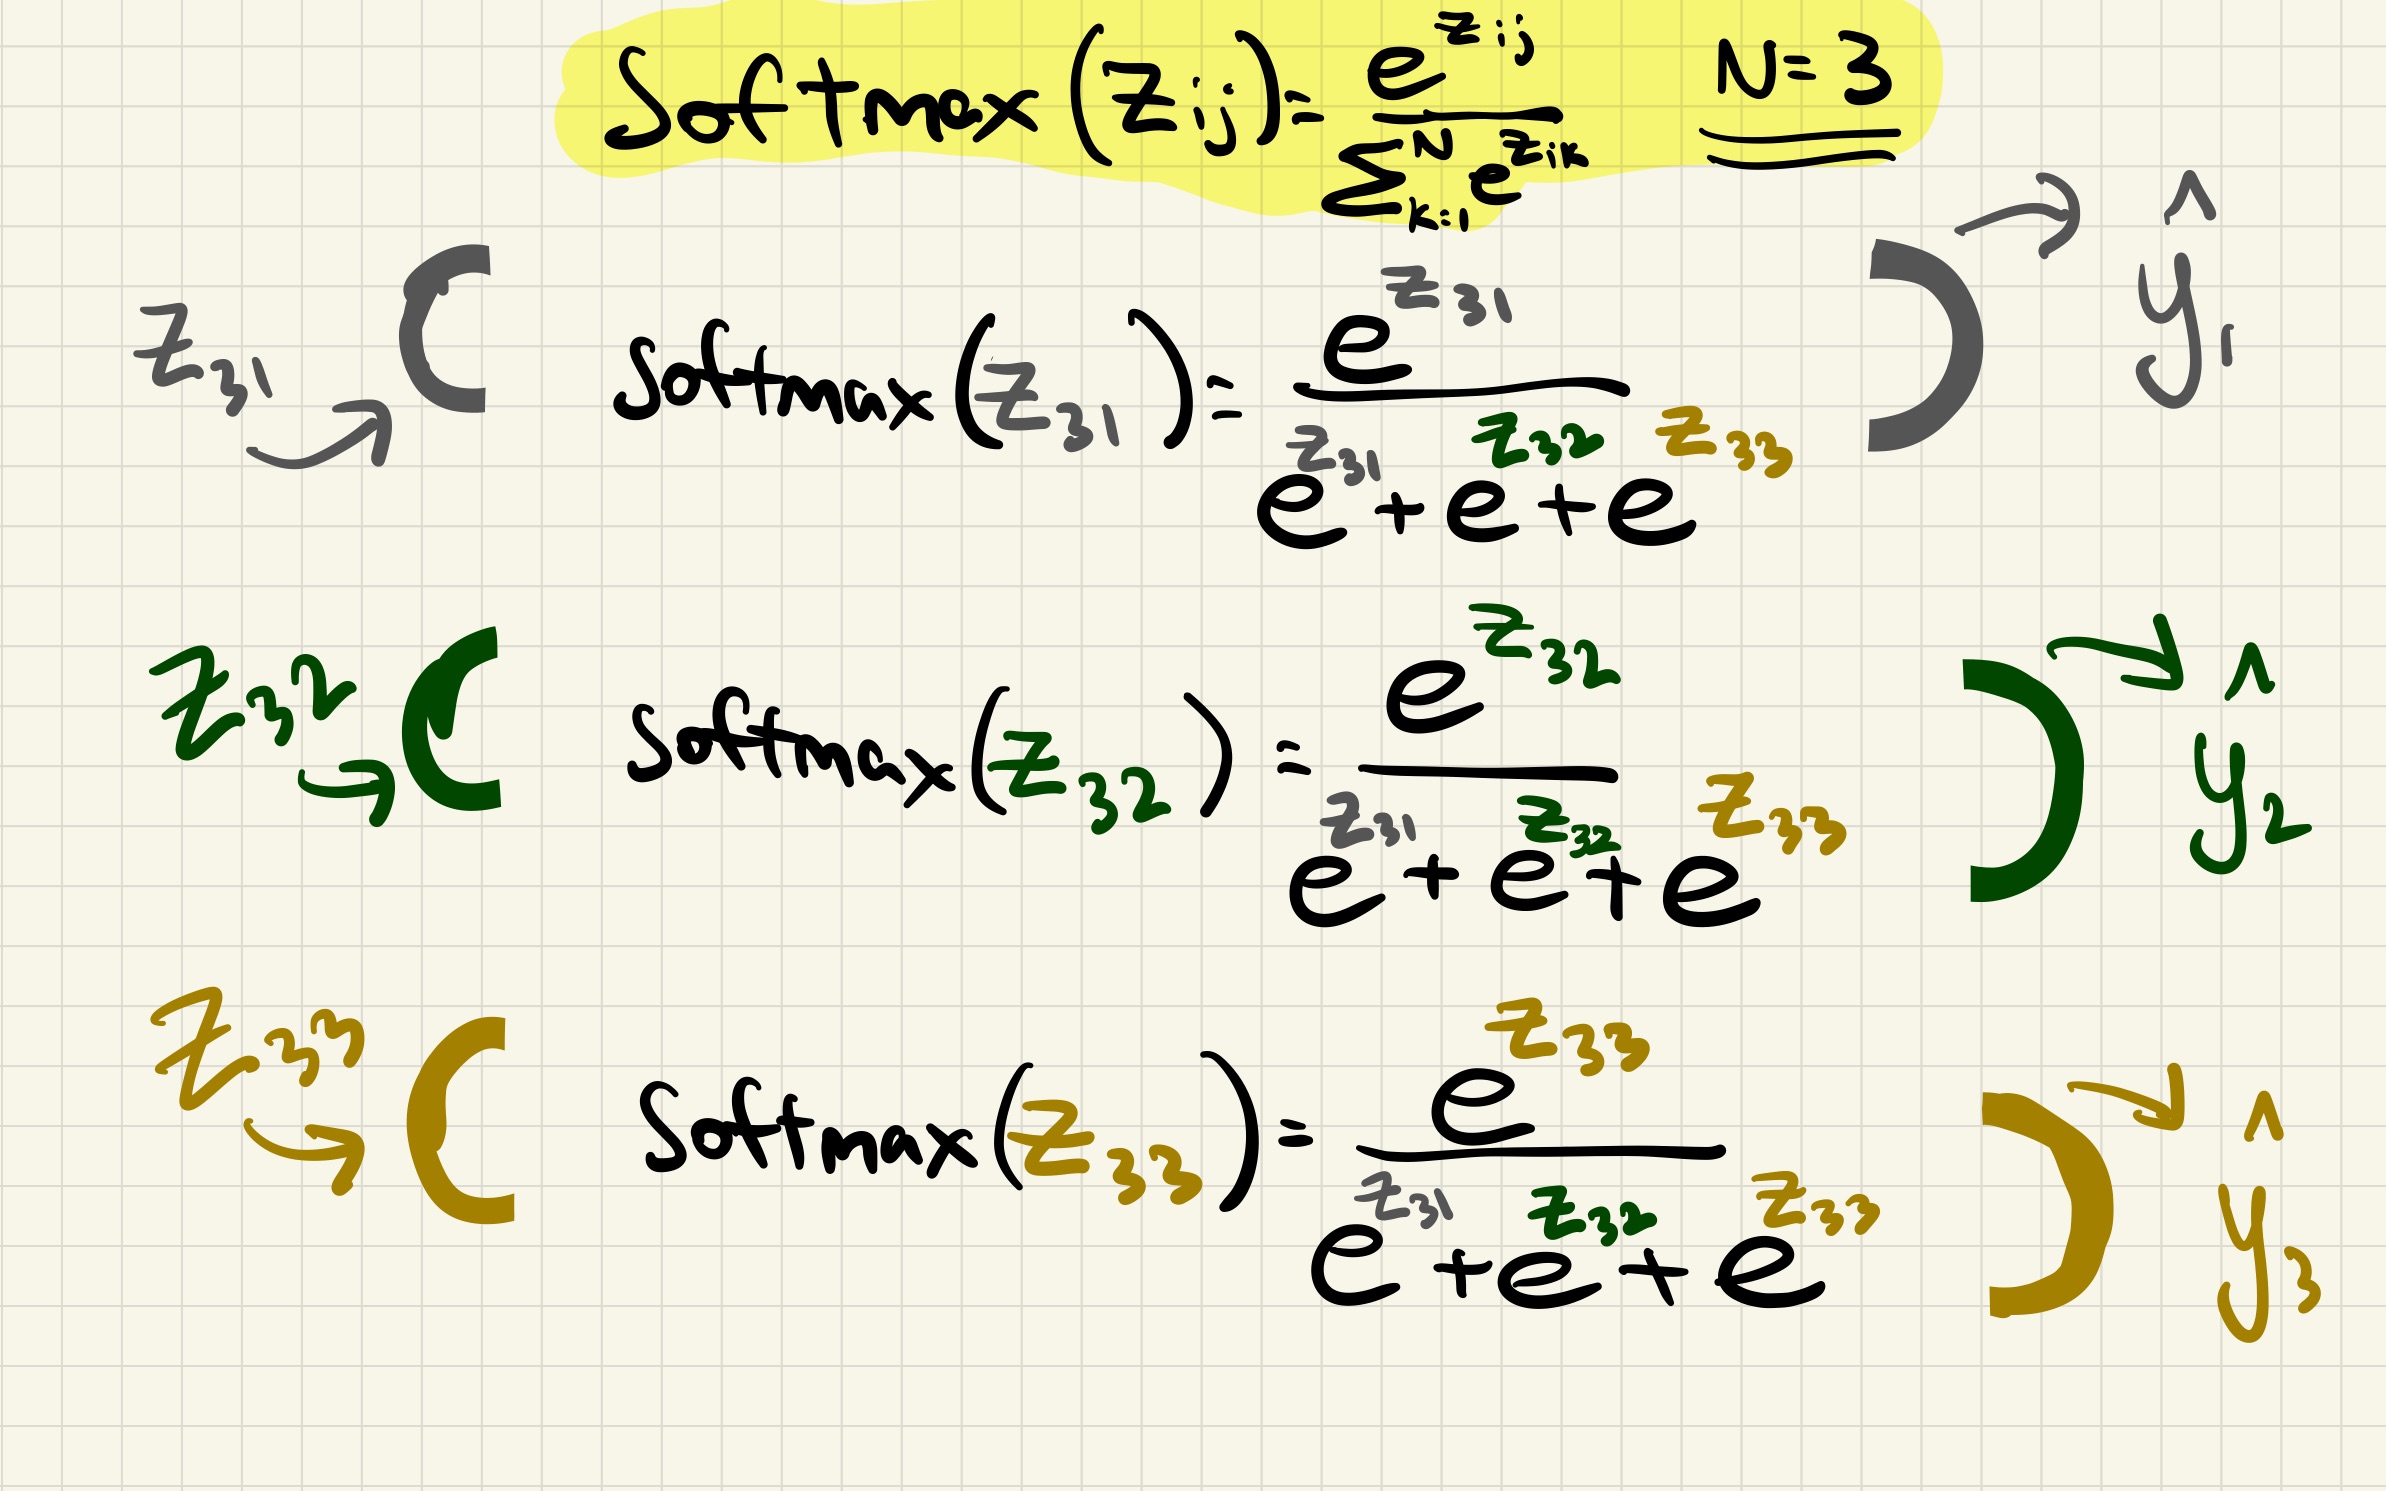 Softmax(zij) = e^zij / Σ^N_k=1 e^zik N=3
z31 softmax(z31) = e^z31 / e^z31 + e^z32 + e^z33 ŷ1
z32 softmax(z32) = e^z32 / e^z31 + e^z32 + e^z33 ŷ2
z33 softmax(z33) = e^z33 / e^z31 + e^z32 + e^z33 ŷ3